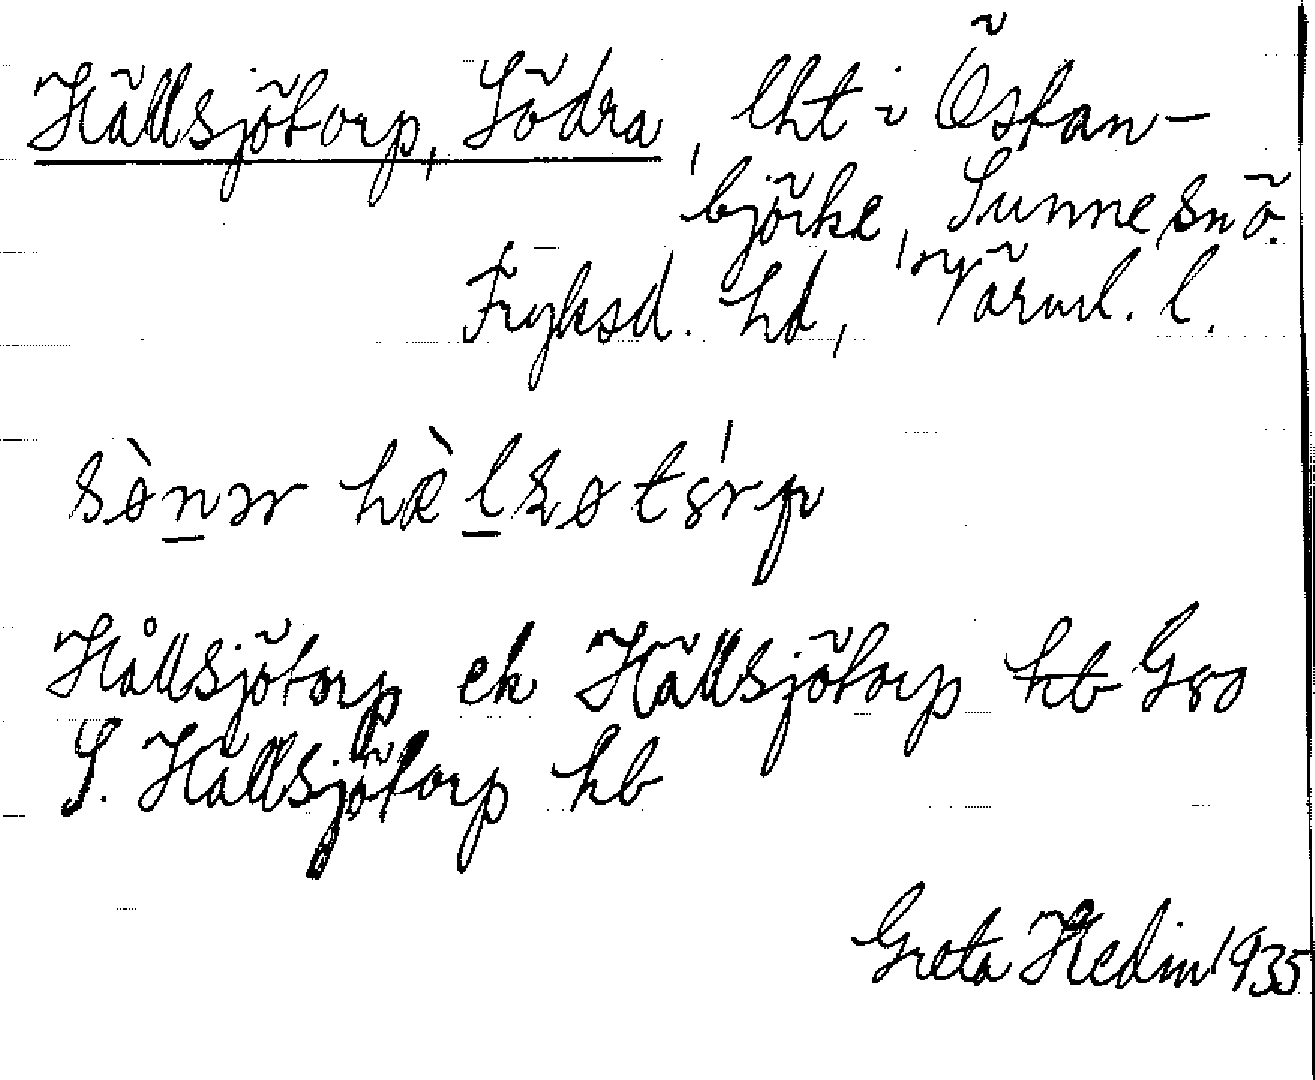 Hällsjötorp, Södra, lht i Östan-
björke, Sunne sn ö.
Fryksd. hd, Värml. l.
sø̀nər hæ̀lsøtɵrp
Hållsjötorp ek Hällsjötorp hb Gso
S. Hällsjötorp hb
Greta Hedin 1935